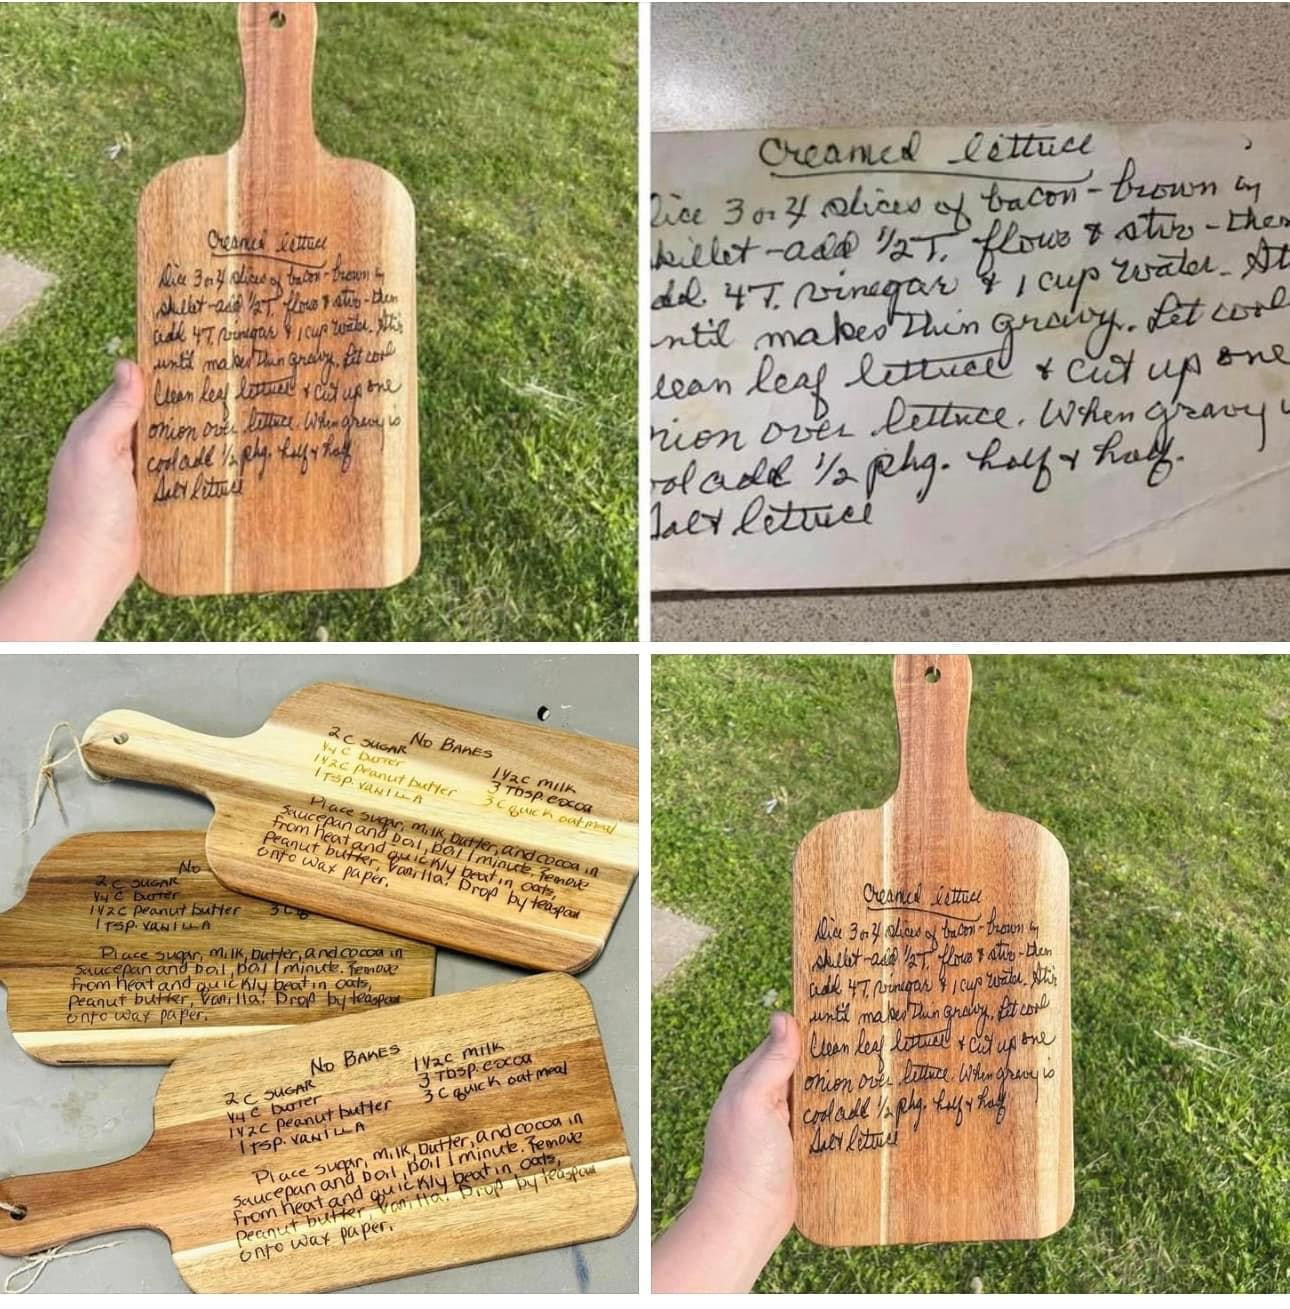 Creamed lettuce
Dice 3 or 4 slices of bacon - brown in
skillet - add 1/2 T. flour & stir - then
add 4 T. vinegar & 1 cup water. Stir
until makes thin gravy. Let cool
Clean leaf lettuce & cut up one
onion over lettuce. When gravy is
cool add 1/2 pkg. half & half
Salt lettuce
Creamed lettuce
Dice 3 or 4 slices of bacon - brown in
skillet - add 1/2 T. flour & stir - then
add 4 T. vinegar & 1 cup water. St
ntil makes thin gravy. Let cool
lean leaf lettuce & cut up one
nion over lettuce. When gravy i
ool add 1/2 pkg. half & half.
Salt lettuce
No BAKES
2 C SUGAR
1/4 C butter
1 1/2 C Peanut butter
1 TSP. VANILLA
1 1/2 C milk
3 Tbsp. cocoa
3 C quick oatmeal
Place sugar, milk, butter, and cocoa in
saucepan and boil, boil 1 minute. Remove
from heat and quickly beat in oats,
Peanut butter, Vanilla! Drop by teaspoon
onto wax paper.
No
2 C SUGAR
1/4 C butter
1 1/2 C Peanut butter
3 C
1 TSP. VANILLA
Place sugar, milk, butter, and cocoa in
saucepan and boil, boil 1 minute. Remove
from heat and quickly beat in oats,
Peanut butter, Vanilla! Drop by teaspoon
onto wax paper.
No BAKES
2 C SUGAR
1/4 C butter
1 1/2 C Peanut butter
1 TSP. VANILLA
1 1/2 C milk
3 Tbsp. cocoa
3 C quick oatmeal
Place sugar, milk, butter, and cocoa in
saucepan and boil, boil 1 minute. Remove
from heat and quickly beat in oats,
Peanut butter, Vanilla! Drop by teaspoon
onto wax paper.
Creamed lettuce
Dice 3 or 4 slices of bacon - brown in
skillet - add 1/2 T. flour & stir - then
add 4 T. vinegar & 1 cup water. Stir
until makes thin gravy. Let cool
Clean leaf lettuce & cut up one
onion over lettuce. When gravy is
cool add 1/2 pkg. half & half
Salt lettuce